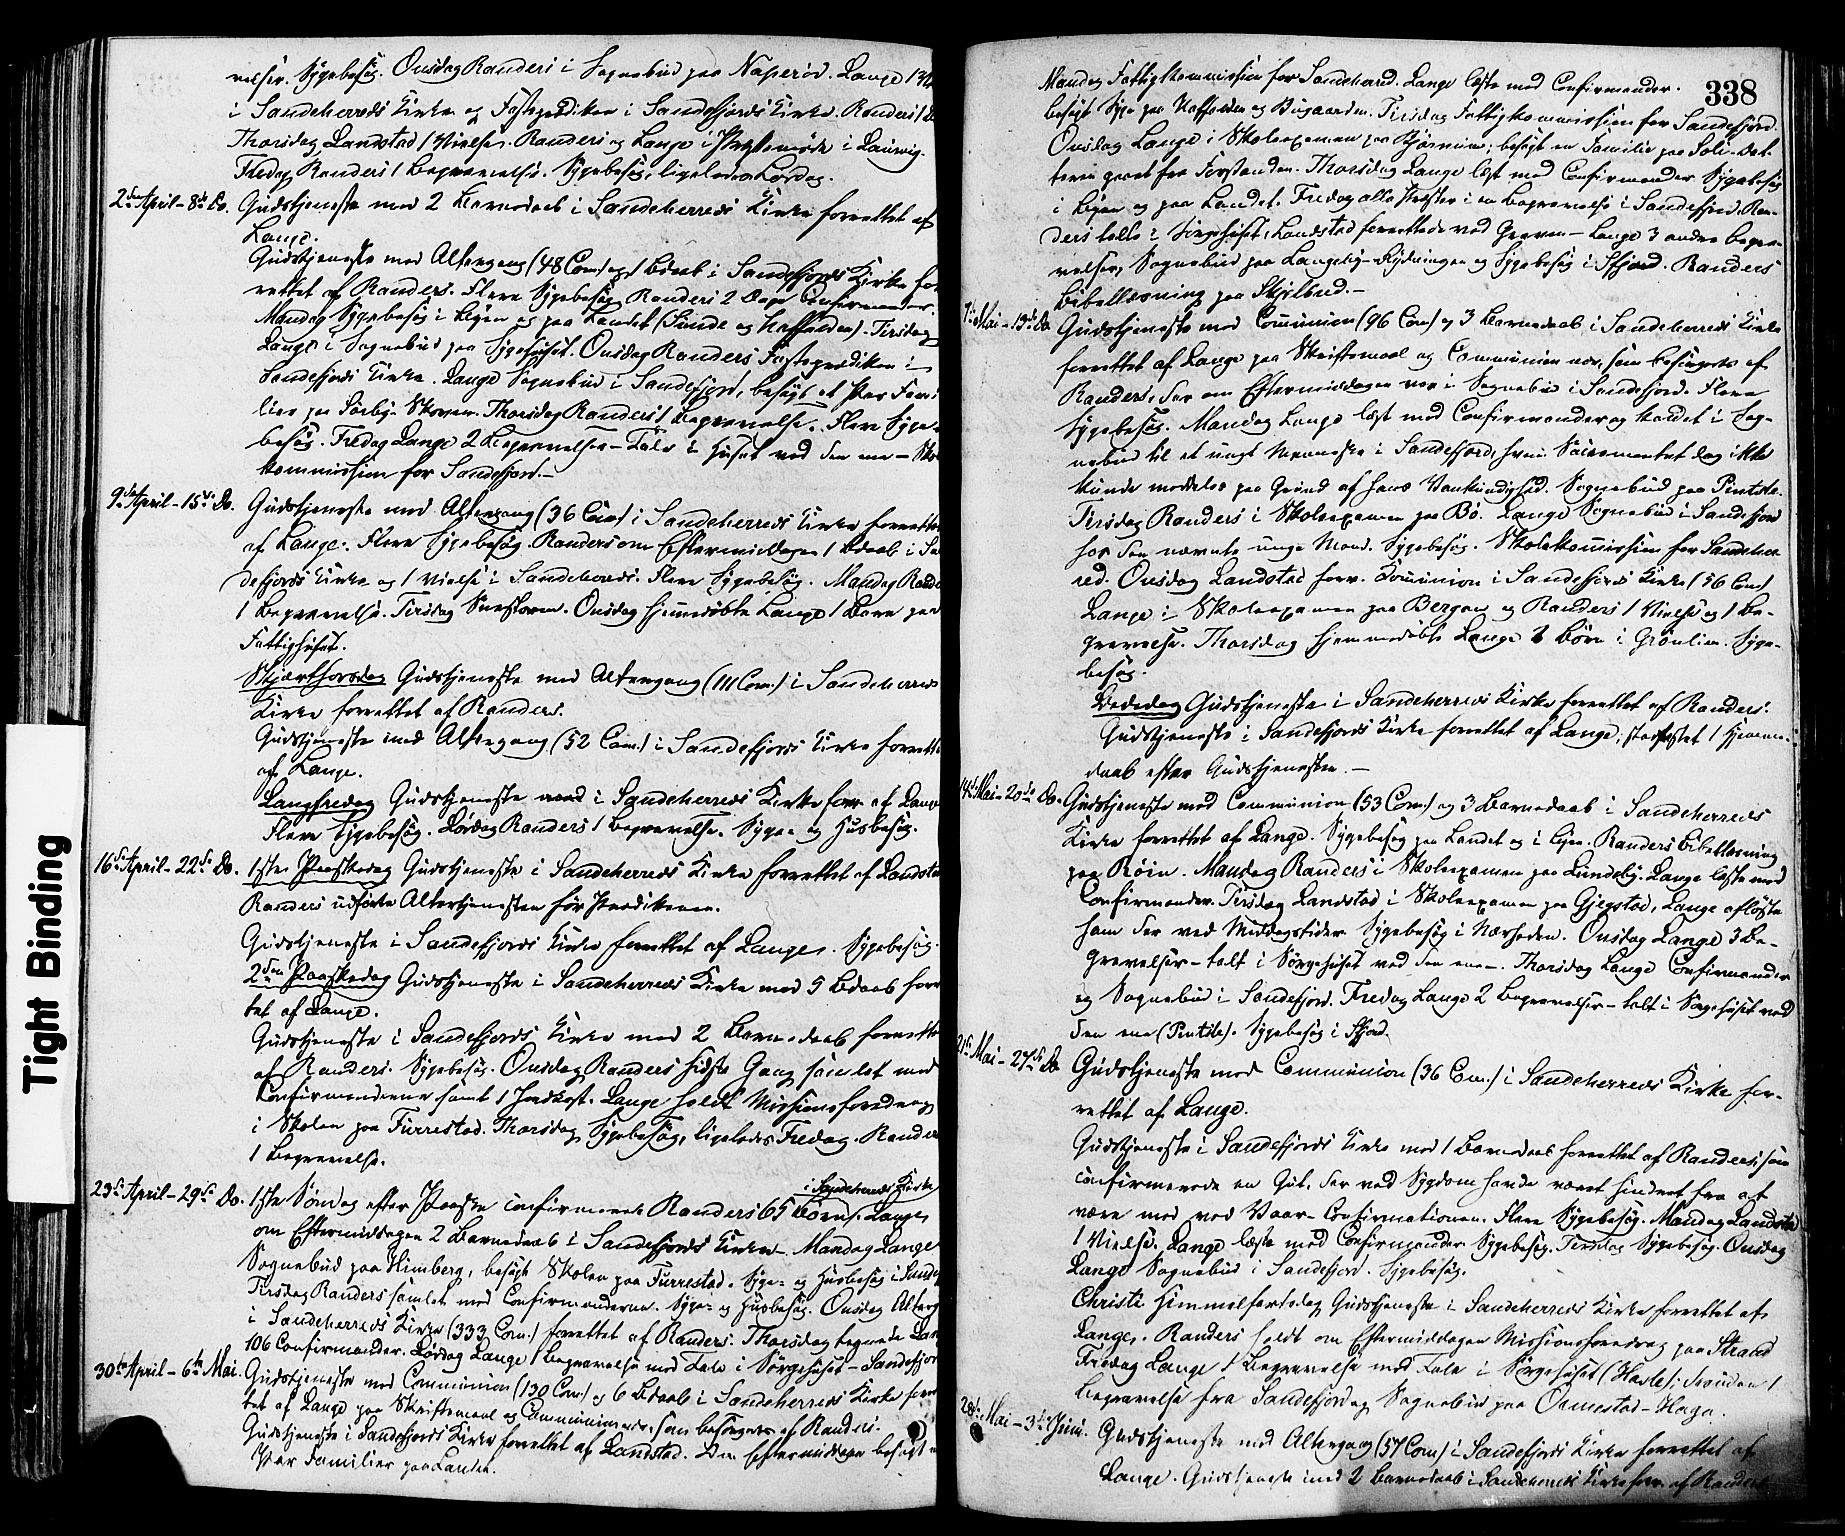 velser. Sygebesög. Onsdag Randers i Sognebud paa Naperöd. Lange 1
i Sandeherreds Kirke og Fasteprædiken i Sandefjords Kirke. Randers 1
Thorsdag Landstad 1 Vielse. Randers og Lange i Præstemöde i Laurvig.
Fredag Randers 1 Begravelse. Sygebesög, ligeledes Lördag.
2den April - 8de Do. Gudstjeneste med 2 Barnedaab i Sandeherreds Kirke forrettet af
Lange.
Gudstjeneste med Altergang (48 Com) og 1 Bdaab i Sandefjords Kirke for
rettet af Randers. Flere Sygebesög. Randers 2 Dage Confirmander.
Mandag Sygebesög i Byen og paa Landet (Sunde og Haffolden). Tirsdag
Lange i Sognebud paa Sygehuset. Onsdag Randers Fasteprædiken i
Sandefjords Kirke. Lange Sognebud i Sandefjord, besögt et Par Fami
lier paa Sörby-Skoven. Thorsdag Randers 1 Begravelse. Flere Syge-
besög. Fredag Lange 2 Begravelser - Tale i Huset ved den ene - Sko
kommission for Sandefjord. -
9de April - 15de Do. Gudstjeneste med Altergang (36 Com) i Sandeherreds Kirke forrettet
af Lange. Flere Sygebesög. Randers om Eftermiddagen 1 Bdaab i San
defjords Kirke og 1 Vielse i Sandeherreds. Flere Sygebesög. Mandag Rande
1 Begravelse. Tirsdag Onsdag hjemmedöbte Lange 1 Barn paa
Fattighuset.
Skjærthorsdag Gudstjeneste med Altergang (111 Com.) i Sandeherreds
Kirke forrettet af Randers.
Gudstjeneste med Altergang (52 Com.) i Sandefjords Kirke forrette
af Lange.
Langfredag Gudstjeneste i Sandeherreds Kirke forr. af Lange
Flere Sygebesög. Lördag Randers 1 Begravelse. Syge- og Husbesög.
16de April - 22de Do. 1ste Paaskedag Gudstjeneste i Sandeherreds Kirke forrettet af Landsta
Randers udförte Altertjenesten för Prædikenen.
Gudstjeneste i Sandefjords Kirke forrettet af Lange. Sygebesög.
2den Paaskedag Gudstjeneste i Sandeherreds Kirke med 5 Bdaab forre
tet af Lange.
Gudstjeneste i Sandefjords Kirke med 2 Barnedaab forrettet
af Randers. Sygebesög. Onsdag Randers sidste Gang samlet med
Confirmanderne samt 1 Jordkast. Lange holdt Missionsforedrag
i Skolen paa Furrestad. Thorsdag Sygebesög, ligeledes Fredag. Rander
1 Begravelse.
23de April - 29de Do. 1ste Söndag efter Paaske confirmerede Randers 65 Börn i Sandeherreds Kirke. Lange
om Eftermiddagen 2 Barnedaab i Sandefjords Kirke. Mandag Lange
Sognebud paa Himberg, besögt Skolen paa Furrestad. Syge- og Husbesög i Sandef
Tirsdag Randers samlet med Confirmanderne. Syge- og Husbesög. Onsdag Alterg
i Sandeherreds Kirke (333 Com.) forrettet af Randers. Thorsdag tegnede Lan
106 Confirmander. Lördag Lange 1 Begravelse med Tale i Sörgehuset - Sandefjord
30te April - 6te Mai. Gudstjeneste med Communion (130 Com) og 6 Bdaab i Sandeherreds Kirke forret
tet af Lange paa Skriftemaal og Communion nær, som besörgedes af Randers.
Gudstjeneste i Sandefjords Kirke forrettet af Landstad. Om Eftermiddagen besögt
Par Familier paa Landet.
338
Mandag Fattigkommission for Sandeherred. Lange læste med Confirmander.
besögt Syge paa Haffolden og Bugaarden. Tirsdag Fattigkommission for Sandefjord.
Onsdag Lange i Skoleexamen paa Hjörnum; besögt en Familie paa
Thorsdag Lange læst med Confirmander Sygebesög
i Byen og paa Landet. Fredag alle Præster i en Begravelse i Sandefjord. Ran-
ders talte i Sörgehuset, Landstad forrettede ved Graven - Lange 3 andre Begra-
velser, Sognebud paa Langeby-Rydningen og Sygebesög i Sfjord. Randers
Bibellæsning paa Skjelbred. -
7de Mai - 13de Do. Gudstjeneste med Communion (96 Com) og 3 Barnedaab i Sandeherreds Kirke
forrettet af Lange paa Skriftemaal og Communion nær, som besörgedes af
Randers, der om Eftermiddagen var i Sognebud i Sandefjord. Flere
Sygebesög. Mandag Lange læst med Confirmander og kaldet i Sog-
nebud til et ungt Menneske i Sandefjord, hvem Sacramentet dog ikke
kunde meddeles paa Grund af hans Vankundighed. Sognebud paa Pintsle.
Tirsdag Randers i Skoleexamen paa Bö. Lange Sognebud i Sandefjord
hos den nævnte unge Mand. Sygebesög. Skolekommission for Sandeher
red. Onsdag Landstad forr. Communion i Sandefjords Kirke (56 Com)
Lange i Skoleexamen paa Bergan og Randers 1 Vielse og 1 Be-
gravelse. Thorsdag hjemmedöbte Lange 2 Börn i Grönlien. Syge-
besög.
Bededag Gudstjeneste i Sandeherreds Kirke forrettet af Randers.
Gudstjeneste i Sandefjords Kirke forrettet af Lange; stadfæstet 1 Hjemme-
daab efter Gudstjenesten. -
14de Mai - 20de Do. Gudstjeneste med Communion (53 Com.) og 3 Barnedaab i Sandeherreds
Kirke forrettet af Lange. Sygebesög paa Landet og i Byen. Randers Bibellæsning
paa Röien. Mandag Randers i Skoleexamen paa Lundeby. Lange læste med
Confirmander. Tirsdag Landstad i Skoleexamen paa Gjegstad, Lange aflöste
ham der ved Middagstider. Sygebesög i Nærheden. Onsdag Lange 3 Be-
gravelser - talt i Sörgehuset ved den ene -. Thorsdag Lange Confirmander
og Sognebud i Sandefjord. Fredag Lange 2 Begravelser - talt i Sörgehuset ved
den ene (Pintsle). Sygebesög i Sfjord.
21de Mai - 27de Do. Gudstjeneste med Communion (36 Com.) i Sandeherreds Kirke for-
rettet af Lange.
Gudstjeneste i Sandefjords Kirke med 1 Barnedaab forrettet af Randers, som
confirmerede en Gut, der ved Sygdom havde været hindret fra at
være med ved Vaar-Confirmationen. Flere Sygebesög. Mandag Landstad
1 Vielse. Lange læste med Confirmander. Sygebesög. Tirsdag Sygebesög. Onsdag
Lange Sognebud i Sandefjord. Sygebesög.
Christi Himmelfartsdag Gudstjeneste i Sandeherreds Kirke forrettet af
Lange. Randers holdt om Eftermiddagen Missionsforedrag paa Strand
Fredag Lange 1 Begravelse med Tale i Sörgehuset (Hasle) 1
Begravelse fra Sandefjord og Sognebud paa Ormestad-Haga.
28de Mai - 3die Juni. Gudstjeneste med Altergang (57 Com) i Sandefjords Kirke forrettet af
Lange. Gudstjeneste med 2 Barnedaab i Sandeherreds Kirke forr. af Randers
Tight Binding